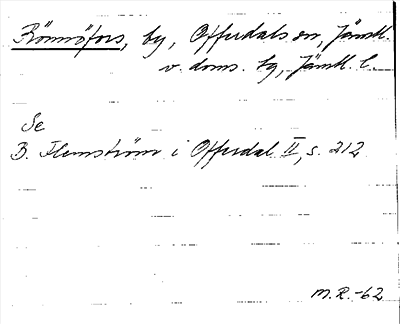 Rönnöfors, by, Offerdals sn, Jämtl.
v. doms. hg, Jämtl. l.
Se
B. Flemström i Offerdal II, s. 212
M.R.-62